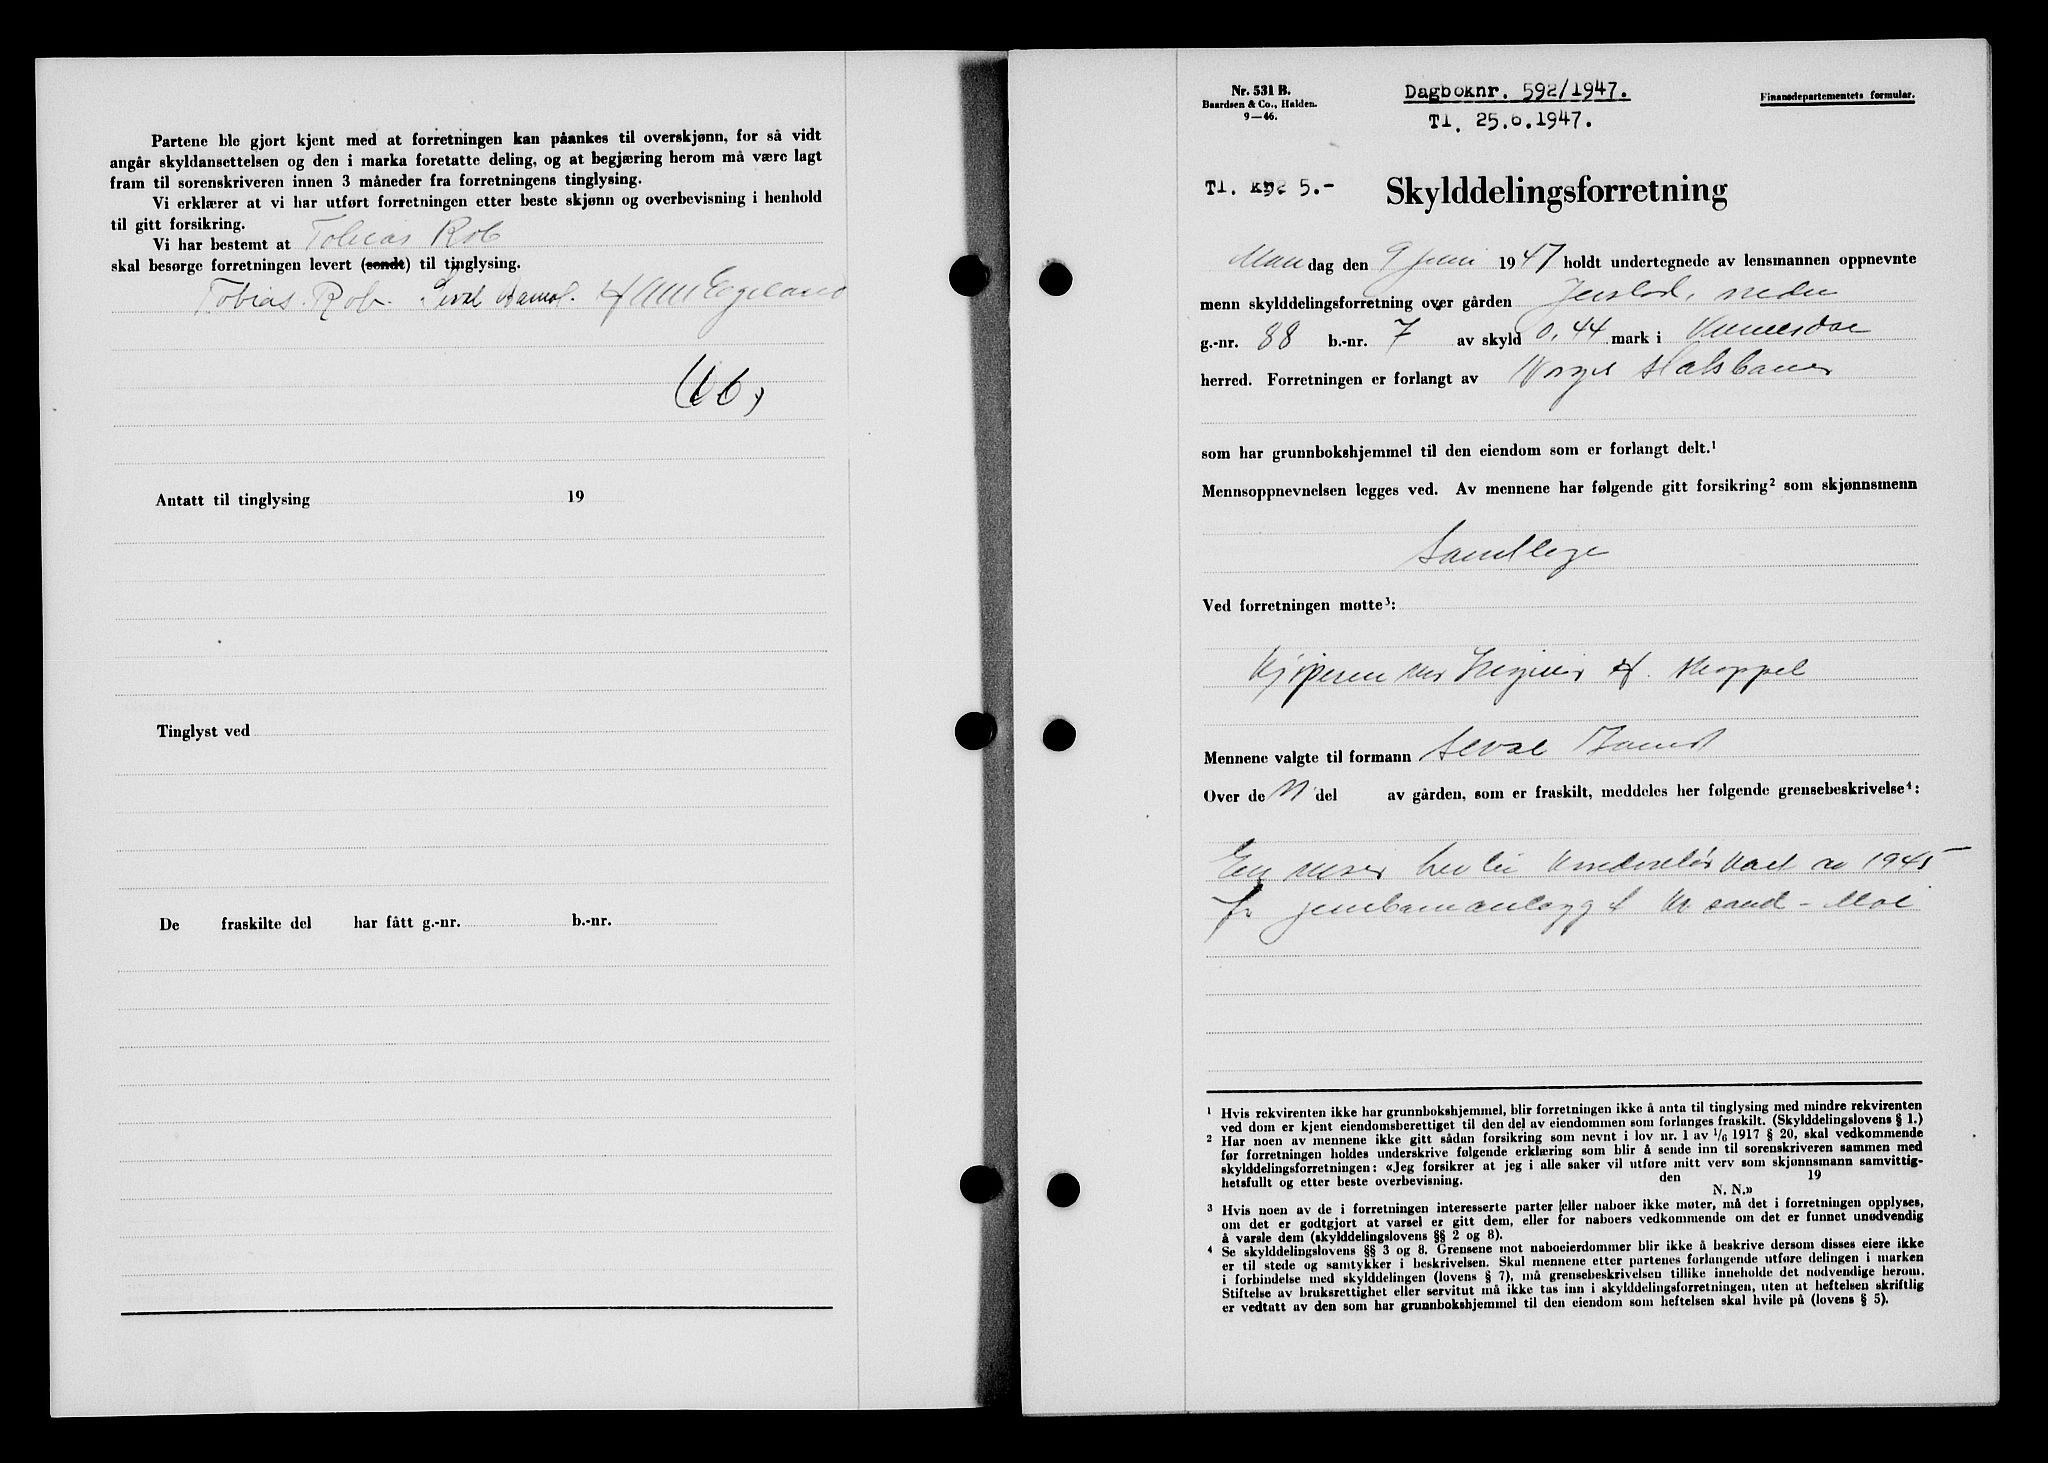 Partene ble gjort kjent med at forretningen kan påankes til overskjønn, for så vidt
angår skyldansettelsen og den i marka foretatte deling, og at begjæring herom må være lagt
fram til sorenskriveren innen 3 måneder fra forretningens tinglysing.
Vi erklærer at vi har utført forretningen etter beste skjønn og overbevisning i henhold
til gitt forsikring.
Vi har bestemt at Tobias Rob
skal besørge forretningen levert (sendt) til tinglysing.
Tobias Rob. Egeland
Antatt til tinglysing 19
Tinglyst ved
De fraskilte del har fått g.-nr. b.-nr.
Nr. 531 B.
Baardsen & Co., Halden.
9—46.
Dagboknr. 592/1947.
Tl. 25.6.1947.
Finansdepartementets formular.
Tl. kr. 5.-
Skylddelingsforretning
Mandag den 9 juni 1947 holdt undertegnede av lensmannen oppnevnte
menn skylddelingsforretning over gården nedre
g.-nr. 88 b.-nr. 7 av skyld 0,44 mark i
herred. Forretningen er forlangt av
som har grunnbokshjemmel til den eiendom som er forlangt delt.¹
Mennsoppnevnelsen legges ved. Av mennene har følgende gitt forsikring² som skjønnsmenn
Samtlige
Ved forretningen møtte³:
Kjøperen ved H. Skoppel
Mennene valgte til formann
Over de n del av gården, som er fraskilt, meddeles her følgende grensebeskrivelse⁴:
En viser her til kart av 1945
for jernbaneanlegget Kr sand - Moi
¹ Hvis rekvirenten ikke har grunnbokshjemmel, blir forretningen ikke å anta til tinglysing med mindre rekvirenten
ved dom er kjent eiendomsberettiget til den del av eiendommen som forlanges fraskilt. (Skylddelingslovens § 1.)
² Har noen av mennene ikke gitt sådan forsikring som nevnt i lov nr. 1 av 1/6 1917 § 20, skal vedkommende
før forretningen holdes underskrive følgende erklæring som blir å sende inn til sorenskriveren sammen med
skylddelingsforretningen: «Jeg forsikrer at jeg i alle saker vil utføre mitt verv som skjønnsmann samvittig-
hetsfullt og etter beste overbevisning. den 19
N. N.»
³ Hvis noen av de i forretningen interesserte parter eller naboer ikke møter, må det i forretningen opplyses,
om det er godtgjort at varsel er gitt dem, eller for naboers vedkommende om det er funnet unødvendig
å varsle dem (skylddelingslovens §§ 2 og 8).
⁴ Se skylddelingslovens §§ 3 og 8. Grensene mot naboeierdommer blir ikke å beskrive dersom disses eiere ikke
er til stede og samtykker i beskrivelsen. Skal mennene etter partenes forlangende utføre delingen i marken
i forbindelse med skylddelingen (lovens § 7), må grensebeskrivelsen tillike inneholde det nødvendige herom.
Stiftelse av bruksrettighet eller servitut må ikke tas inn i skylddelingsforretningen, uten at heftelsen skriftlig
er vedtatt av den som har grunnbokshjemmel til den eiendom som heftelsen skal hvile på (lovens § 5).